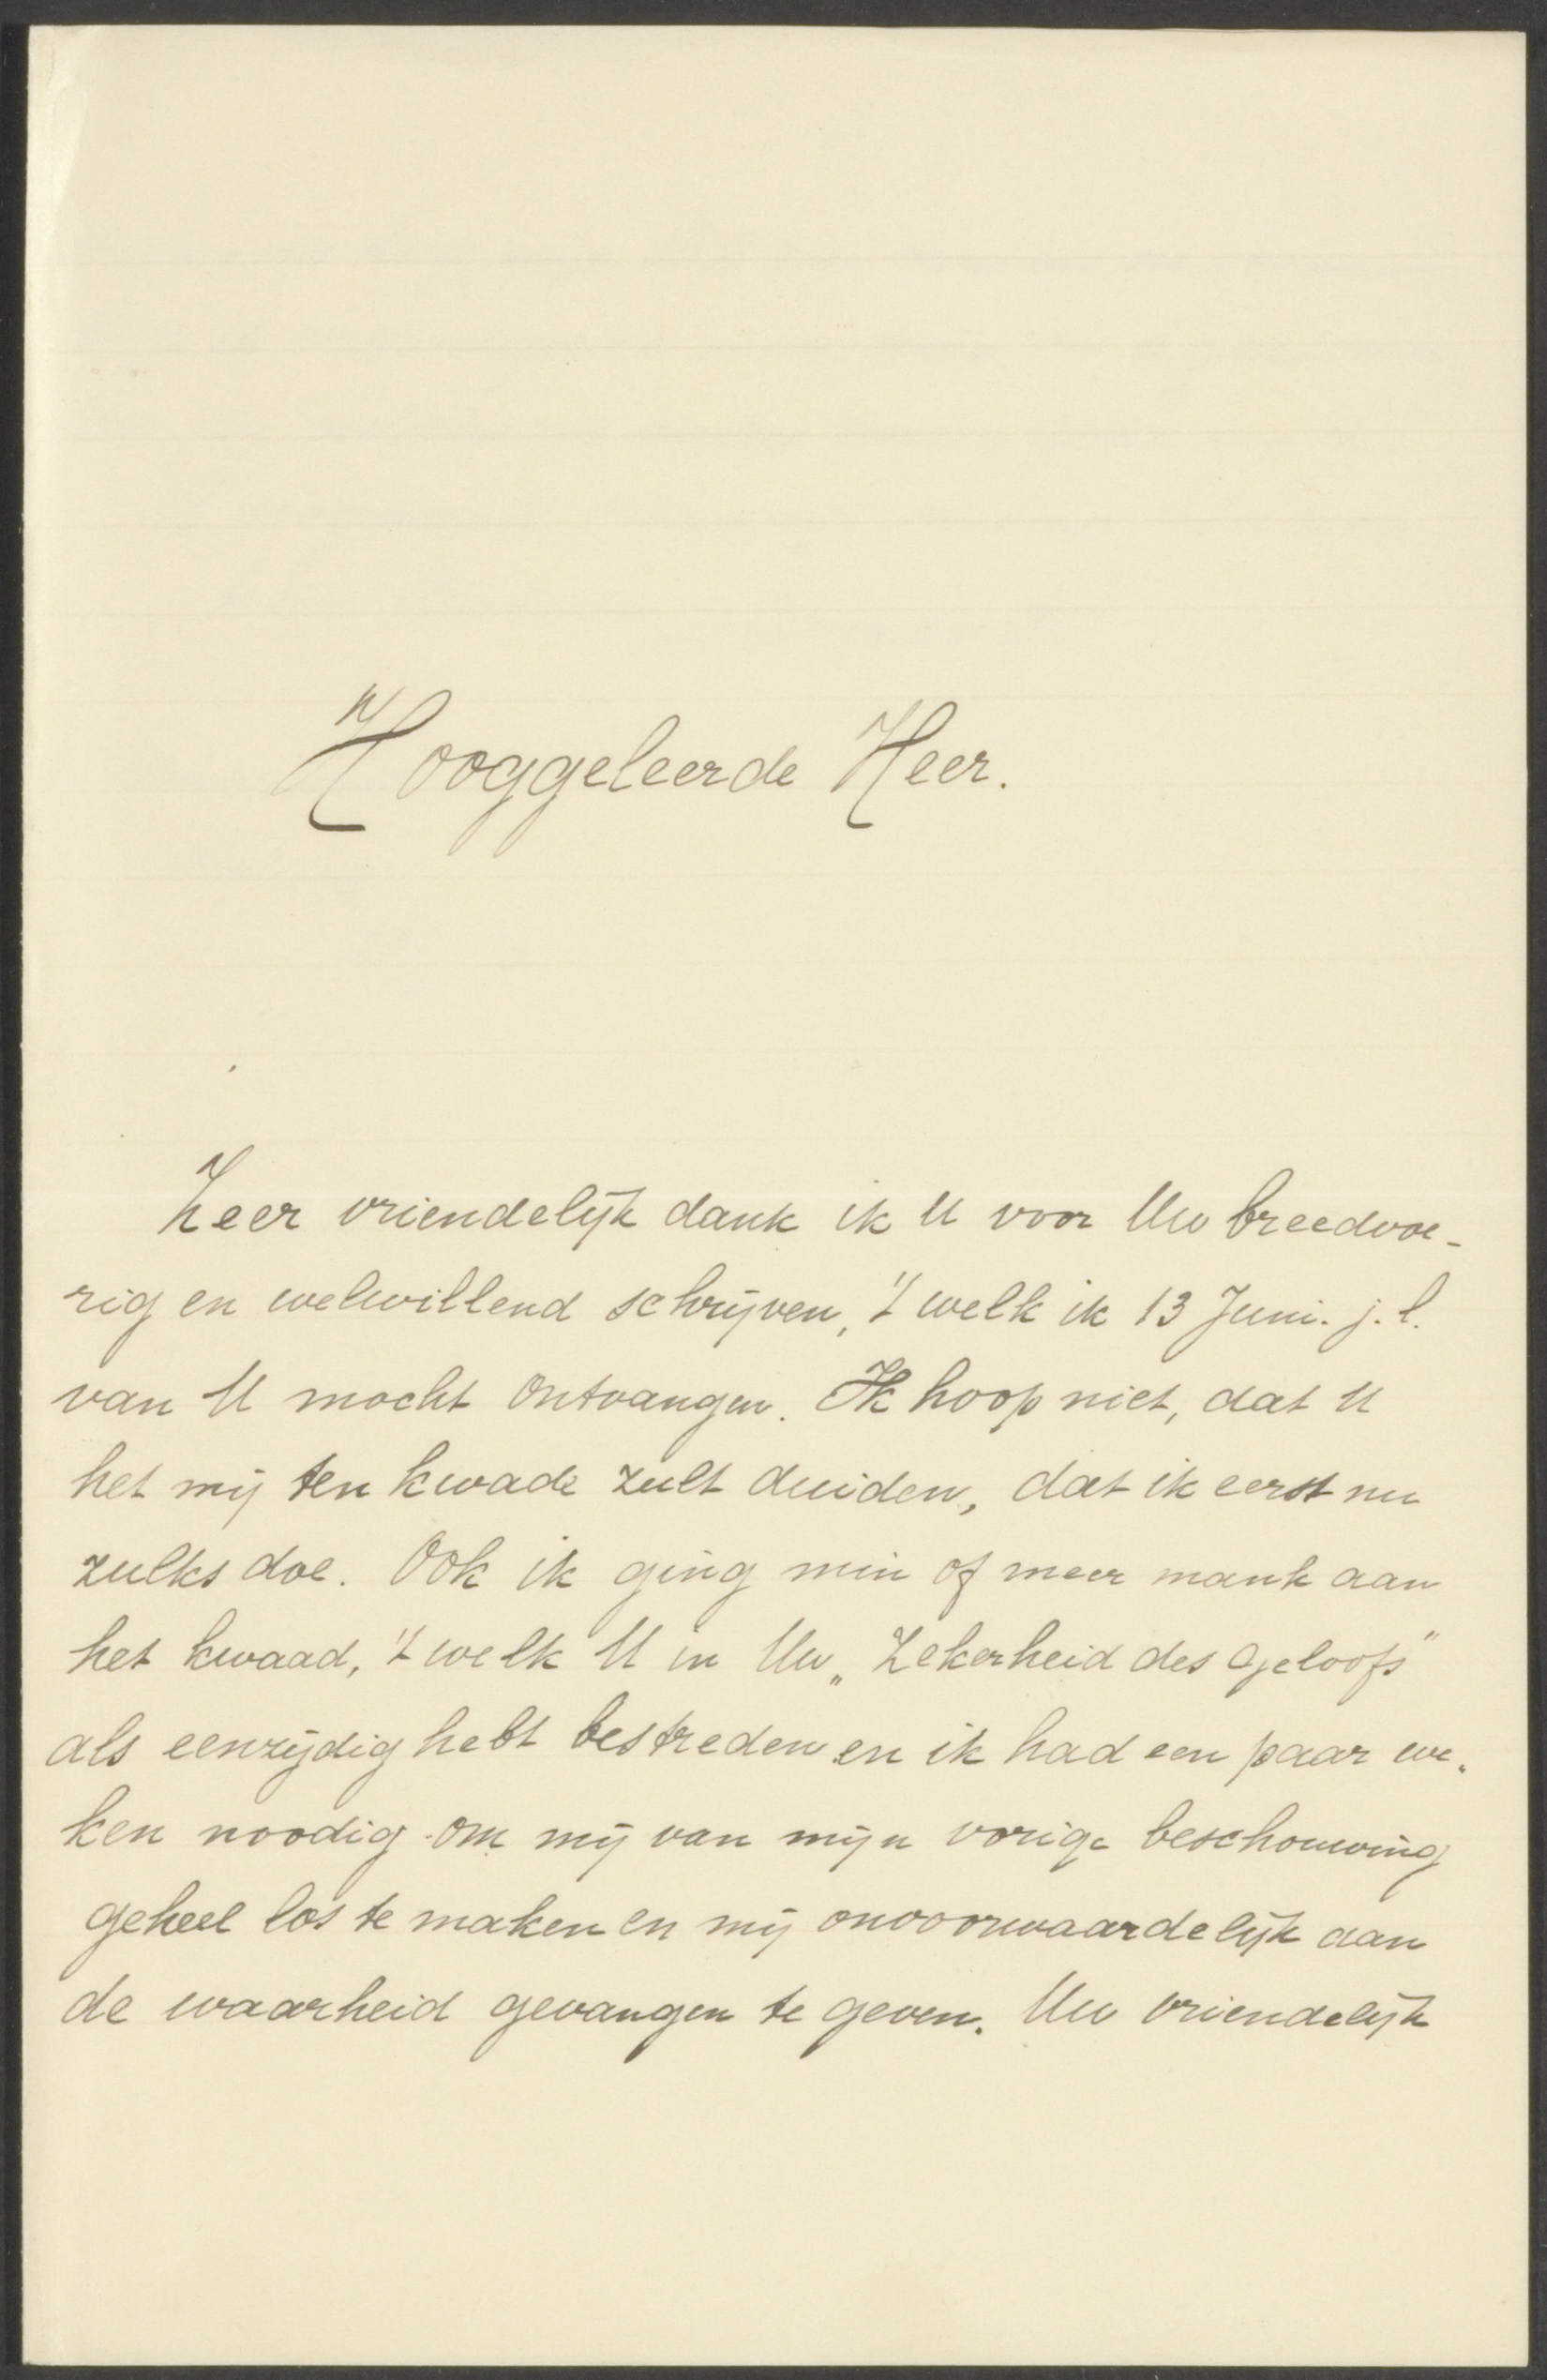 Hooggeleerde Heer.
Zeer vriendelijk dank ik U voor Uw breedvoe-
rig en welwillend schrijven, 't welk ik 13 Juni. j.l.
van U mocht ontvangen. Ik hoop niet, dat U
het mij ten kwade zult duiden, dat ik eerst nu
zulks doe. Ook ik ging min of meer mank aan
het kwaad, 't welk U in Uw „Zekerheid des geloofs"
als eenzijdig hebt bestreden en ik had een paar we-
ken noodig om mij van mijn vorige beschouwing
geheel los te maken en mij onvoorwaardelijk aan
de waarheid gevangen te geven. Uw vriendelijk